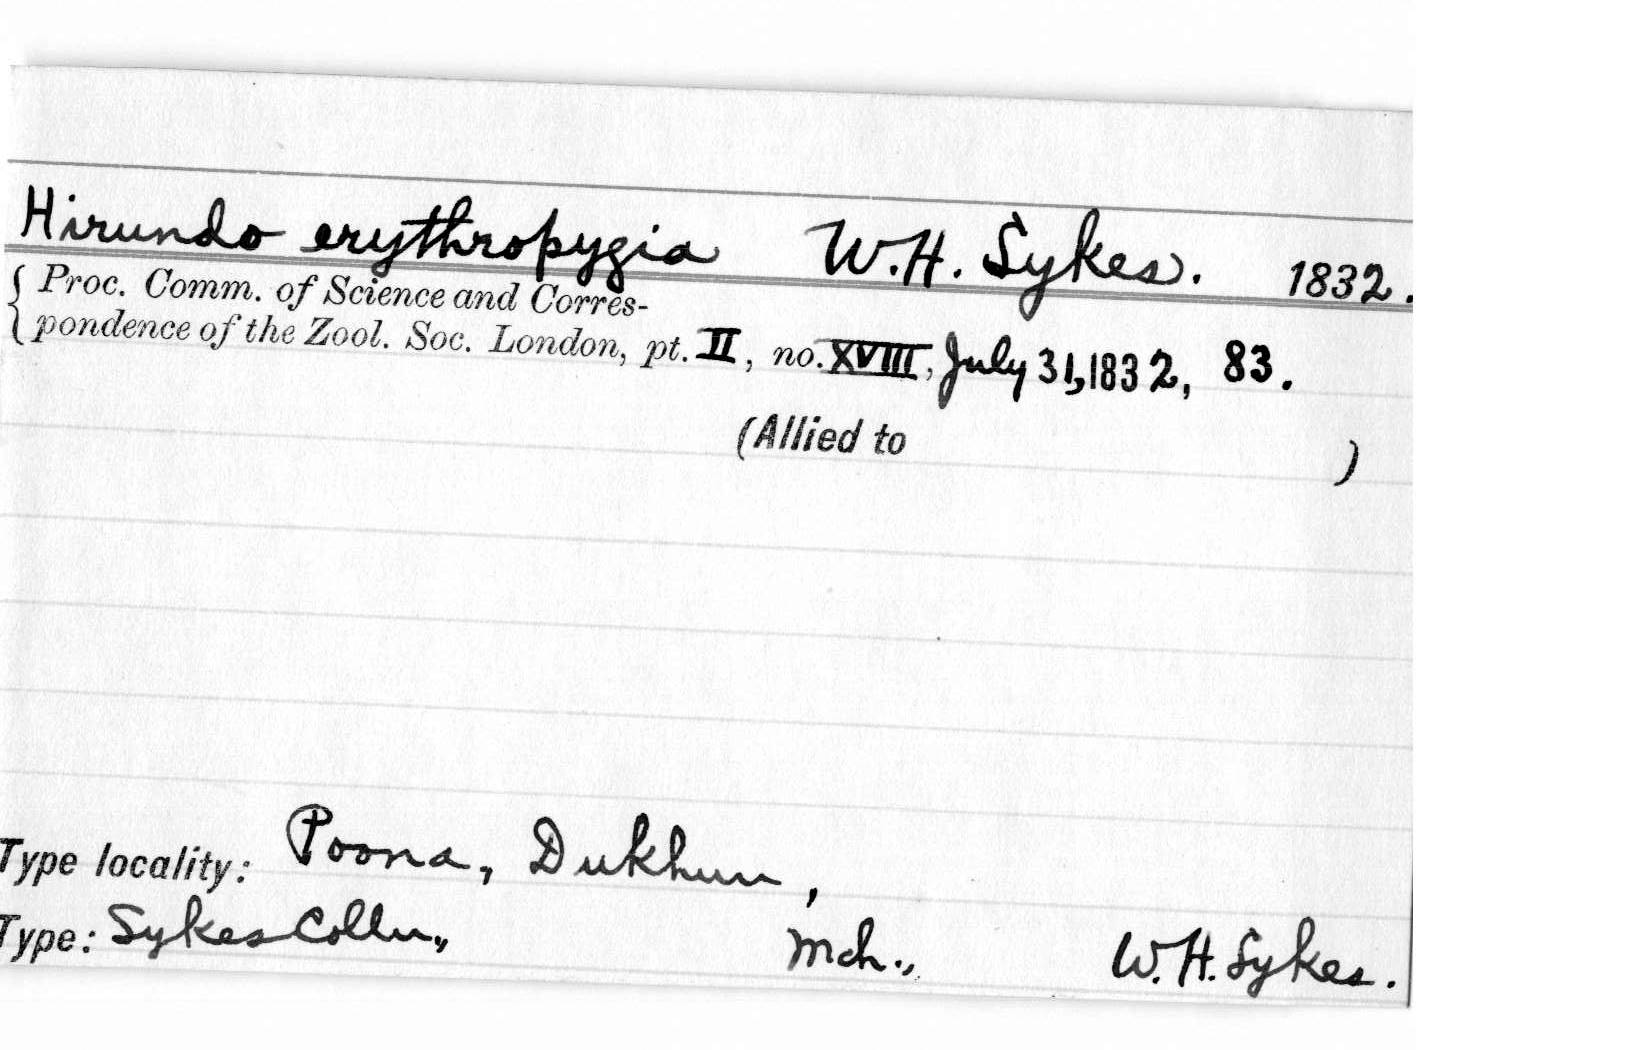 Hirundo erythropygia W.H. Sykes. 1832.
{ Proc. Comm. of Science and Corres-
pondence of the Zool. Soc. London, pt. II, no. XVIII, July 31, 1832, 83.
(Allied to )
Type locality: Poona, Dukhun,
Type: Sykes Colln., Mch., W.H. Sykes.